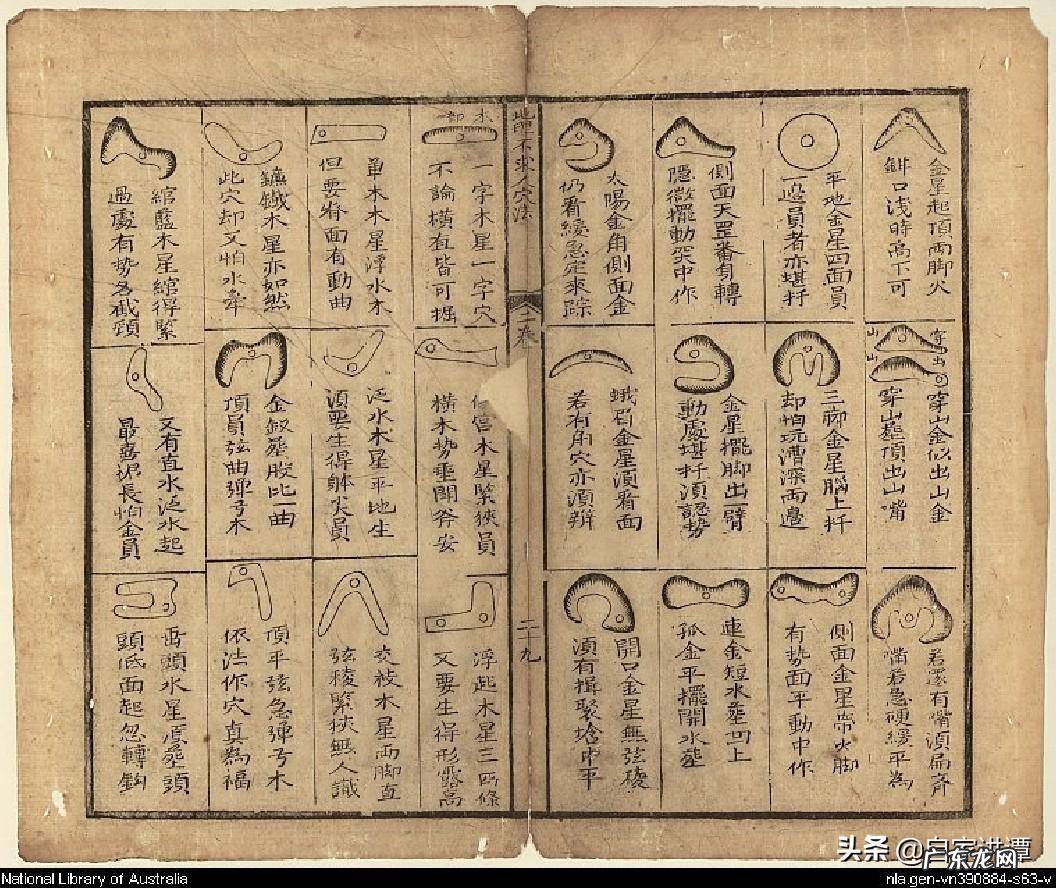 金星起頂兩脚火
鉗口淺時高下可
平地金星四面員
一邊員者亦堪扦
側面天罡番身轉
隱微擺動突中作
太陽金角側面金
仍看緩急定來踪
穿山金似出山金
穿山塟頂出山嘴
三腳金星腦上扦
却怕坑漕深兩邊
金星擺脚出一臂
動處堪扦須認勢
蛾眉金星須看面
若有角穴亦須辨
若還有嘴須扁齊
嘴若急硬緩平為
側面金星帶火脚
有勢面平動中作
連金短水塟凹上
孤金平擺開水塟
開口金星無弦稜
須有揖聚堪中平
地理不求人穴法
卷
二十九
一字木星一字穴
不論橫直皆可掘
單木木星浮水木
但要身面有動曲
鐮鐵木星亦如然
此穴却又怕水牽
綰籃木星綰得緊
過處有勢為截頸
宮木星緊狹員
橫木勢垂閗斧安
泛水木星平地生
須要生得觧尖員
金釵塟股比一曲
頂員弦曲彈弓木
又有直水泛水起
最喜泥長怕金員
浮起木星三四條
又要生得形露高
交枝木星兩脚直
弦稜緊狹無人識
頂平弦急彈弓木
依法作穴真為福
雷頭水星原塟頭
頭低面起忽轉鈎
National Library of Australia
nla.gen-vn390884-s63-v
头条